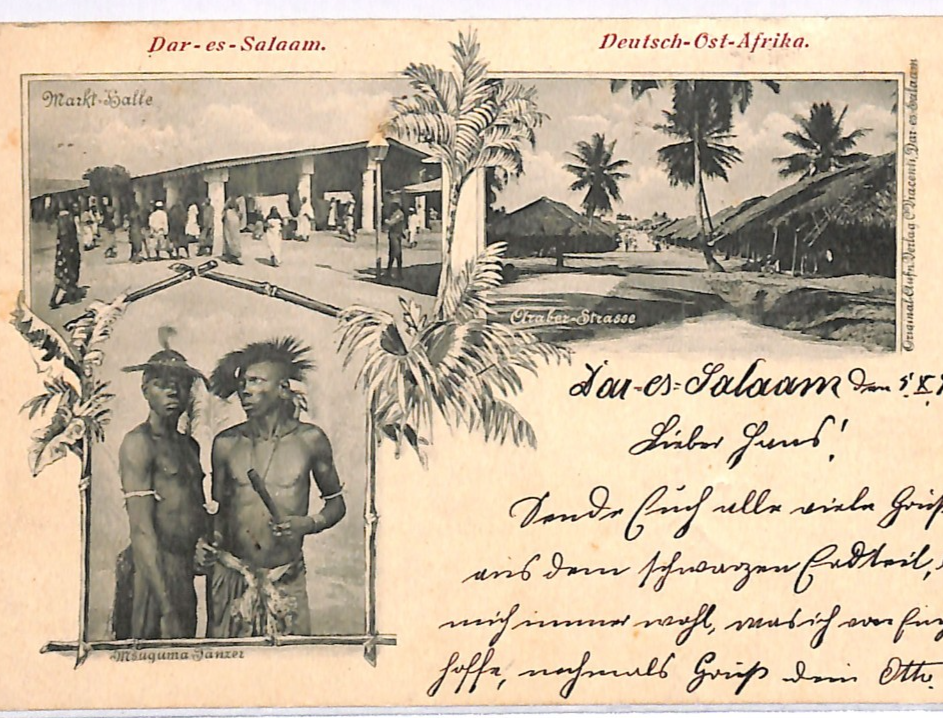 Dar-es-Salaam.
Deutsch-Ost-Afrika.
Markt-Halle
Araber-Strasse
Original-Aufn. Verlag C. Vincenti, Dar-es-Salaam
Msuguma Tänzer
Dar-es-Salaam den 5. X.
Lieber Hans!
Sende Euch alle viele
aus dem schwarzen Erdteil,
mich immer wohl, was ich von
hoffe, nochmals Gruß dein Otto.